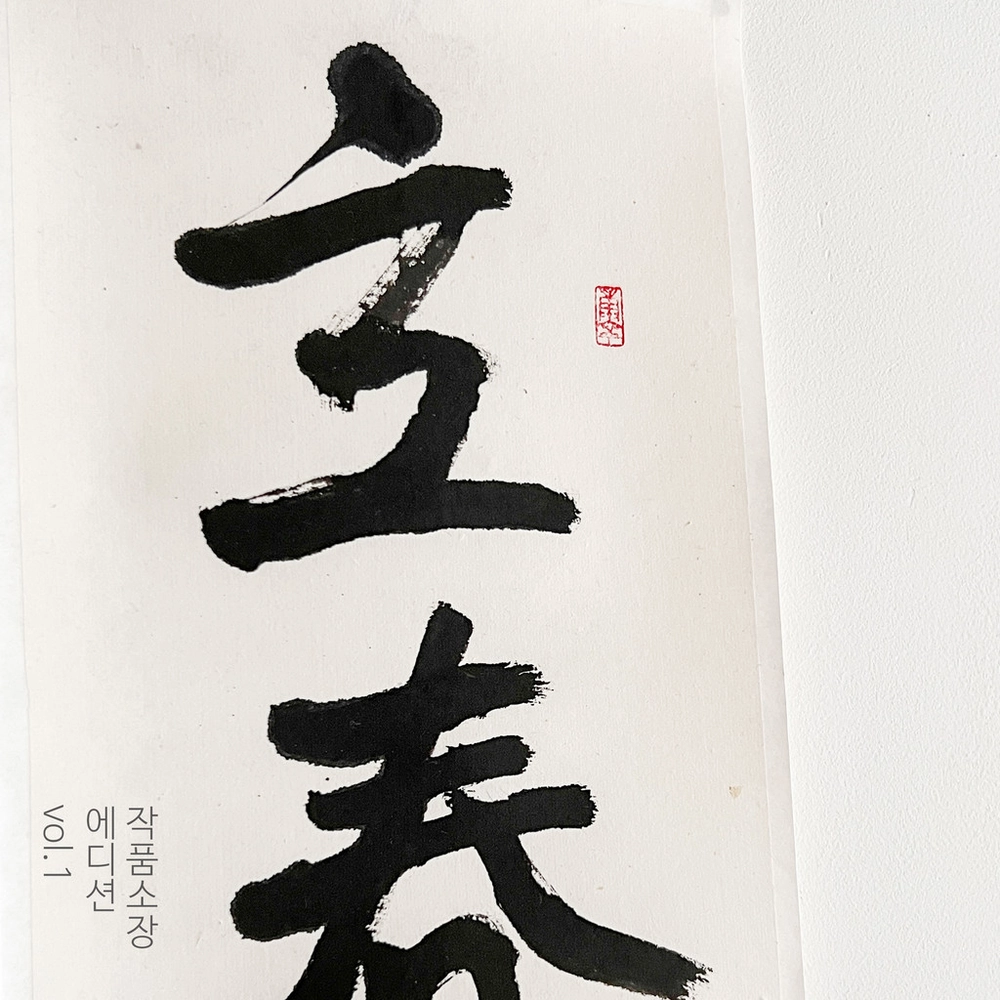 立春
작품소장
에디션
vol.1